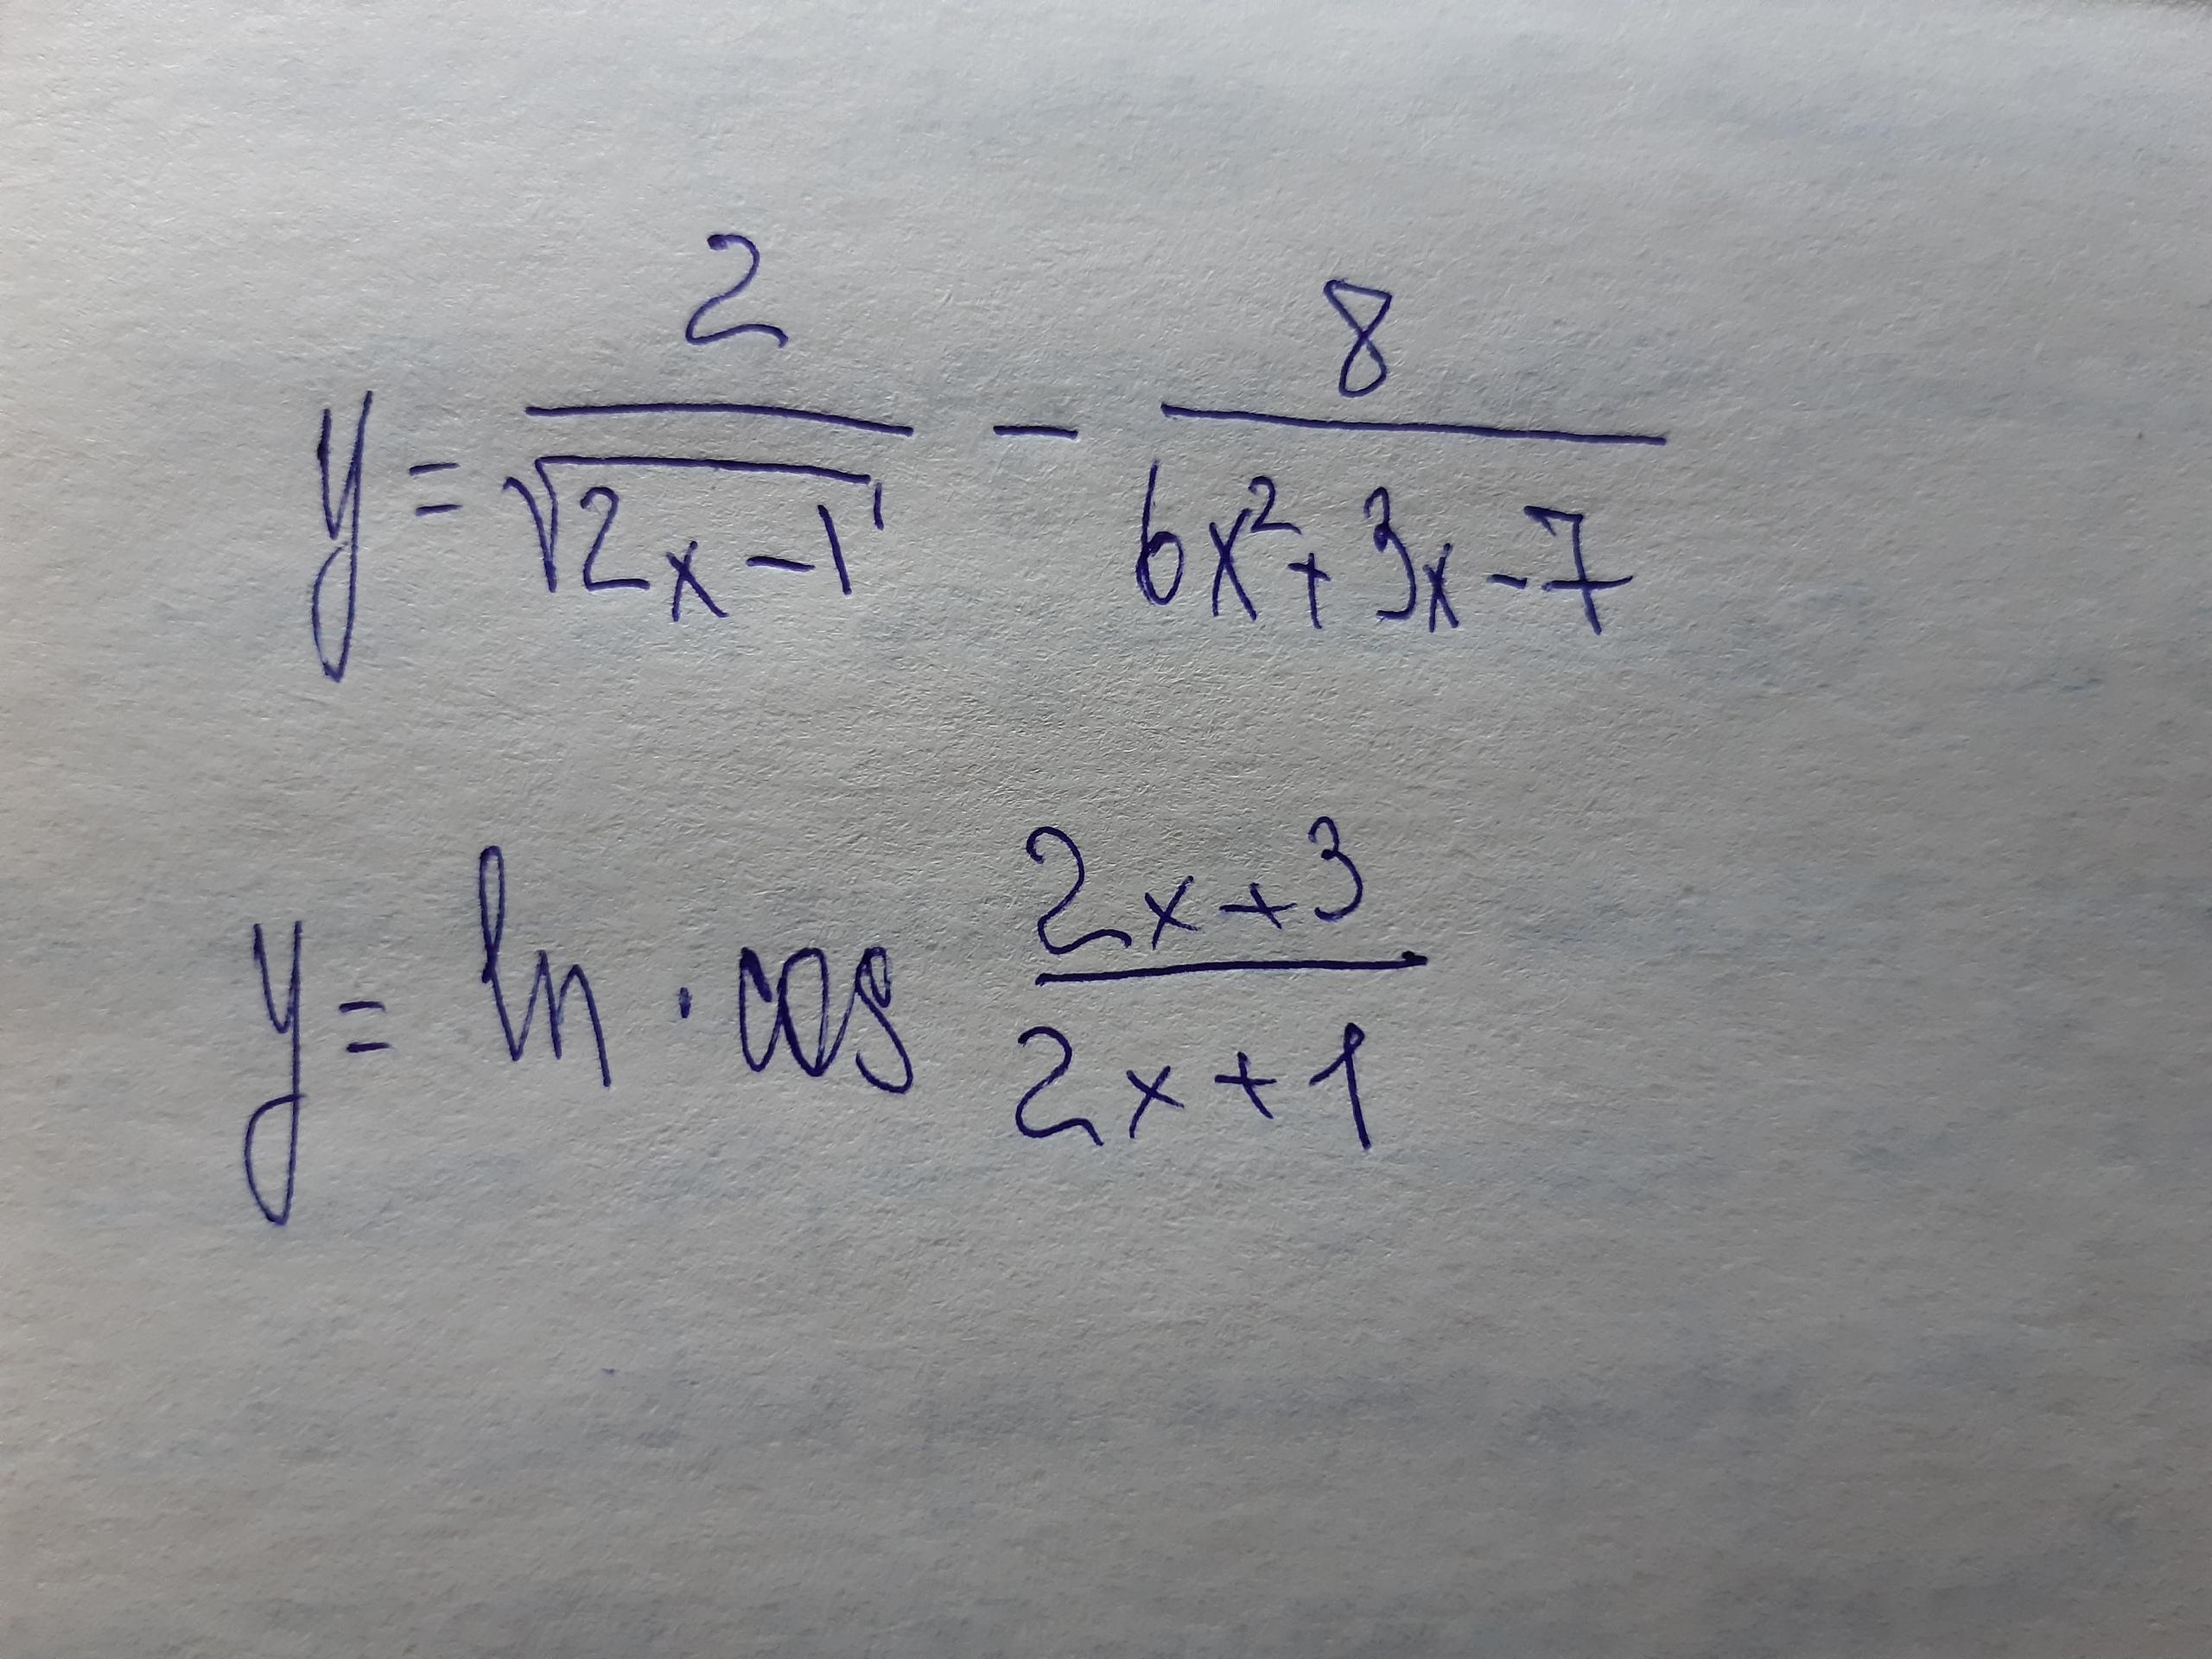 y = 2/√(2x-1) - 8/(6x²+3x-7)
y = ln · cos (2x+3)/(2x+1)